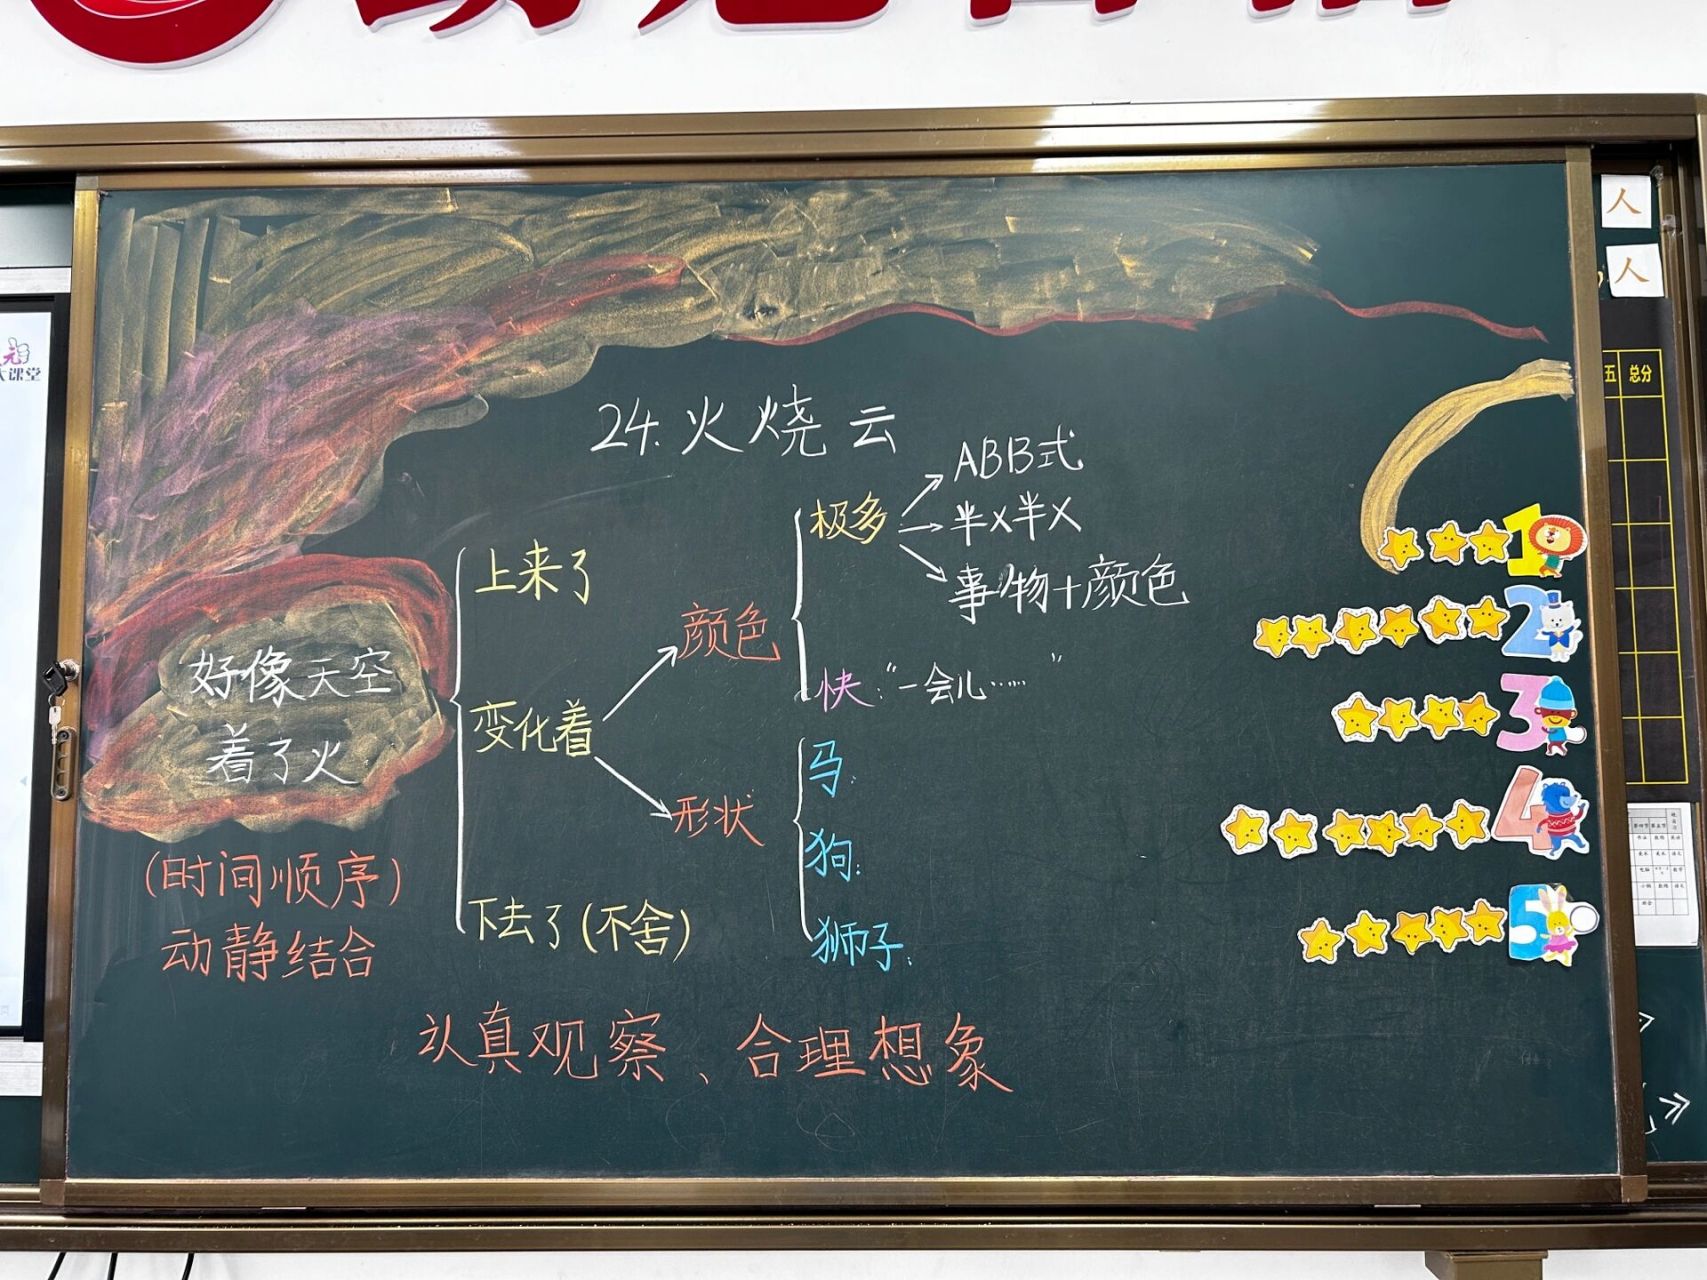 24.火烧云
好像天空
着了火
(时间顺序)
动静结合
上来了
变化着
下去了(不舍)
颜色
形状
极多
ABB式
半X半X
事物+颜色
快:“一会儿……”
马:
狗:
狮子:
认真观察、合理想象
1
2
3
4
5
人
人
五 总分
大课堂